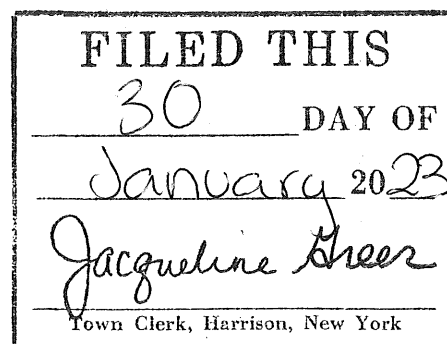 FILED THIS
30 DAY OF
January 2023
Jacqueline Greer
Town Clerk, Harrison, New York